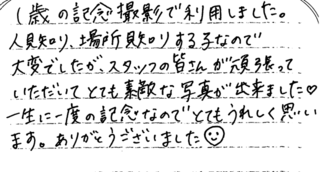 1歳の記念撮影で利用しました。
人見知り、場所見知りする子なので
大変でしたがスタッフの皆さんが頑張って
いただいてとても素敵な写真が出来ました♡
一生に一度の記念なのでとてもうれしく思い
ます。ありがとうございました☺